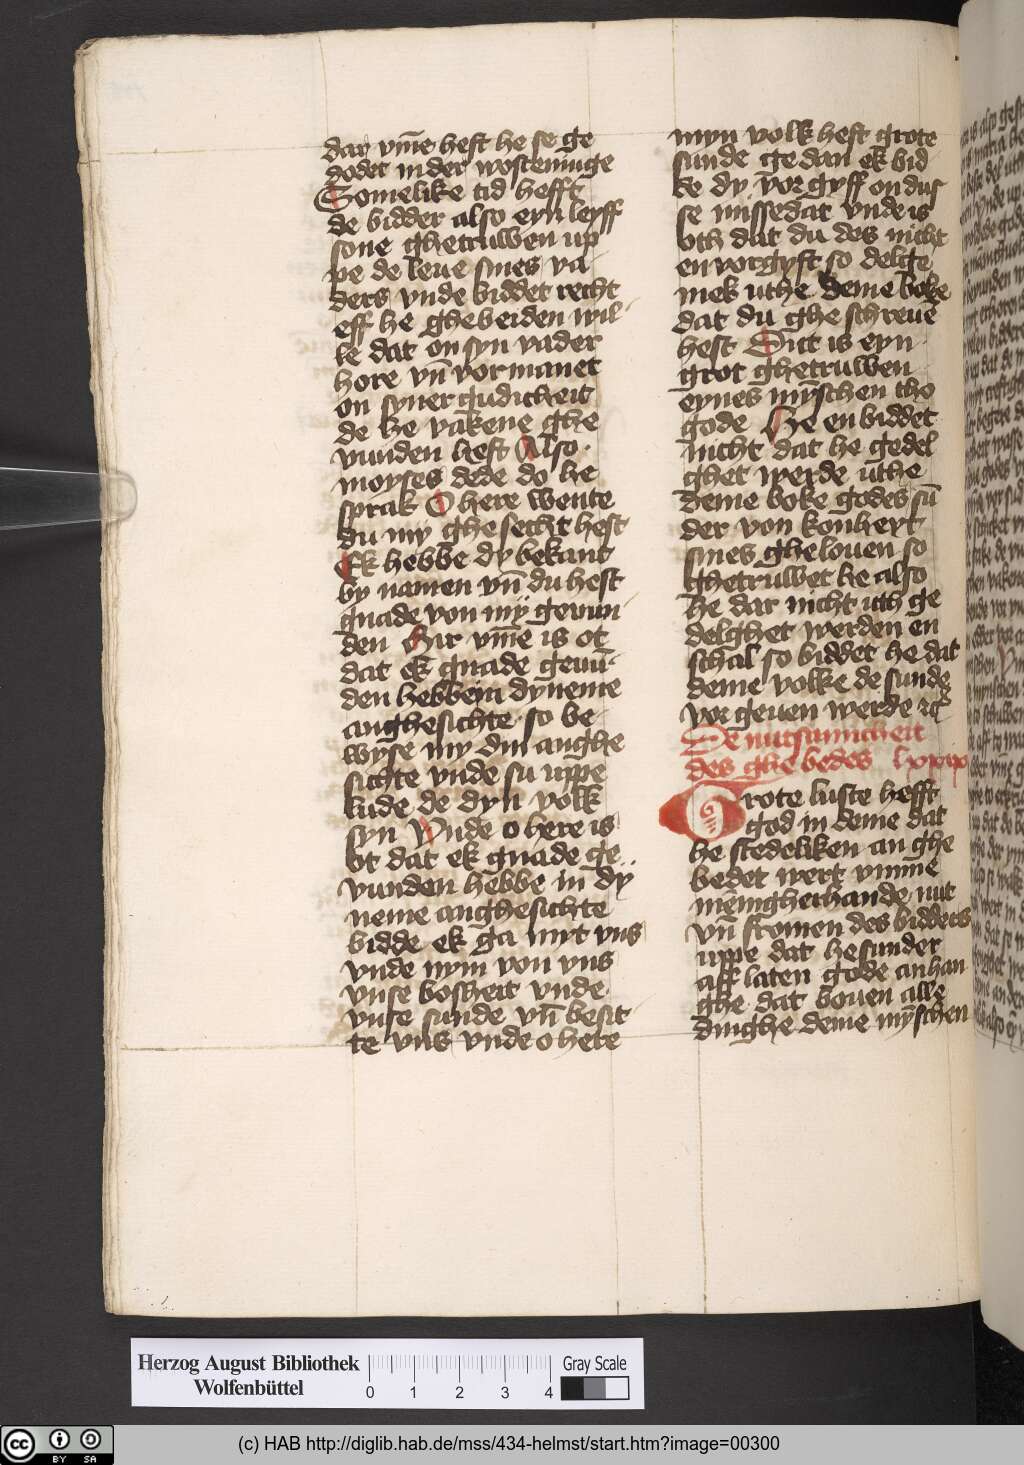 dar vm̄e heft he se ge
godet in der wosteninge
Somelike tid hefft
de bidder also eyn leyff
sone ghetruwen up
pe de leue sines va
ders vnde biddet recht
eff he ghebeiden wil
le dat on syn vader
hore vn̄ vormanet
on syner gudicheit
de he vakene ghe
vunden heft Also
moyses dede do he
sprak O here wente
du my ghesecht hest
Ek hebbe dy bekant
by namen vn̄ du hest
gnade von my gevun
den Hir vm̄e is ot
dat ek gnade gevū
den hebbe in dyneme
anghesichte so be
wyse my din anghe
sichte vnde su uppe
lude de dyn volk
syn Vnde o here is
ot dat ek gnade ge
vunden hebbe in dy
neme anghesichte
bidde ek ga myt vns
vnde nym von vns
vnse bosheit vnde
vnse sunde vn̄ besit
te vns vnde o here
myn volk heft grote
sunde ge dan ek bid
de dy vor gyff on dus
se missedat vnde is
oth dat du des nicht
en vorgyfst so delge
mek uthe deme boke
dat du ghe schreue
hest Dit is eyn
grot ghetruwen
eynes mȳschen tho
gode He en biddet
nicht dat he gedel
ghet werde uthe
deme boke godes sū
der von konheyt
sines ghelouen so
ghetruwet he also
he dar nicht uth ge
delghet werden en
schal so biddet he dat
deme volke de sunde
vor geuen werde rc̄
De nutsamicheit
des ghe bedes lxxix
Grote luste hefft
god in deme dat
he stedeliken an ghe
bedet wert vmme
mēnigherhande nut
vn̄ fromen des bidders
uppe dat he sunder
aff laten gode anhan
ghe dat bouen alle
dinghe deme mȳschen
Herzog August Bibliothek
Wolfenbüttel
0 1 2 3 4
Gray Scale
cc BY SA
(c) HAB http://diglib.hab.de/mss/434-helmst/start.htm?image=00300